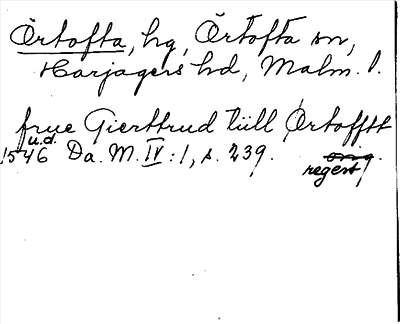 Örtofta, hg, Örtofta sn,
Harjagers hd, Malm. l.
frue Gierttrud tiill Ørtofftt
u.d.
1546 Da. M. IV:1, s. 239.
regest!